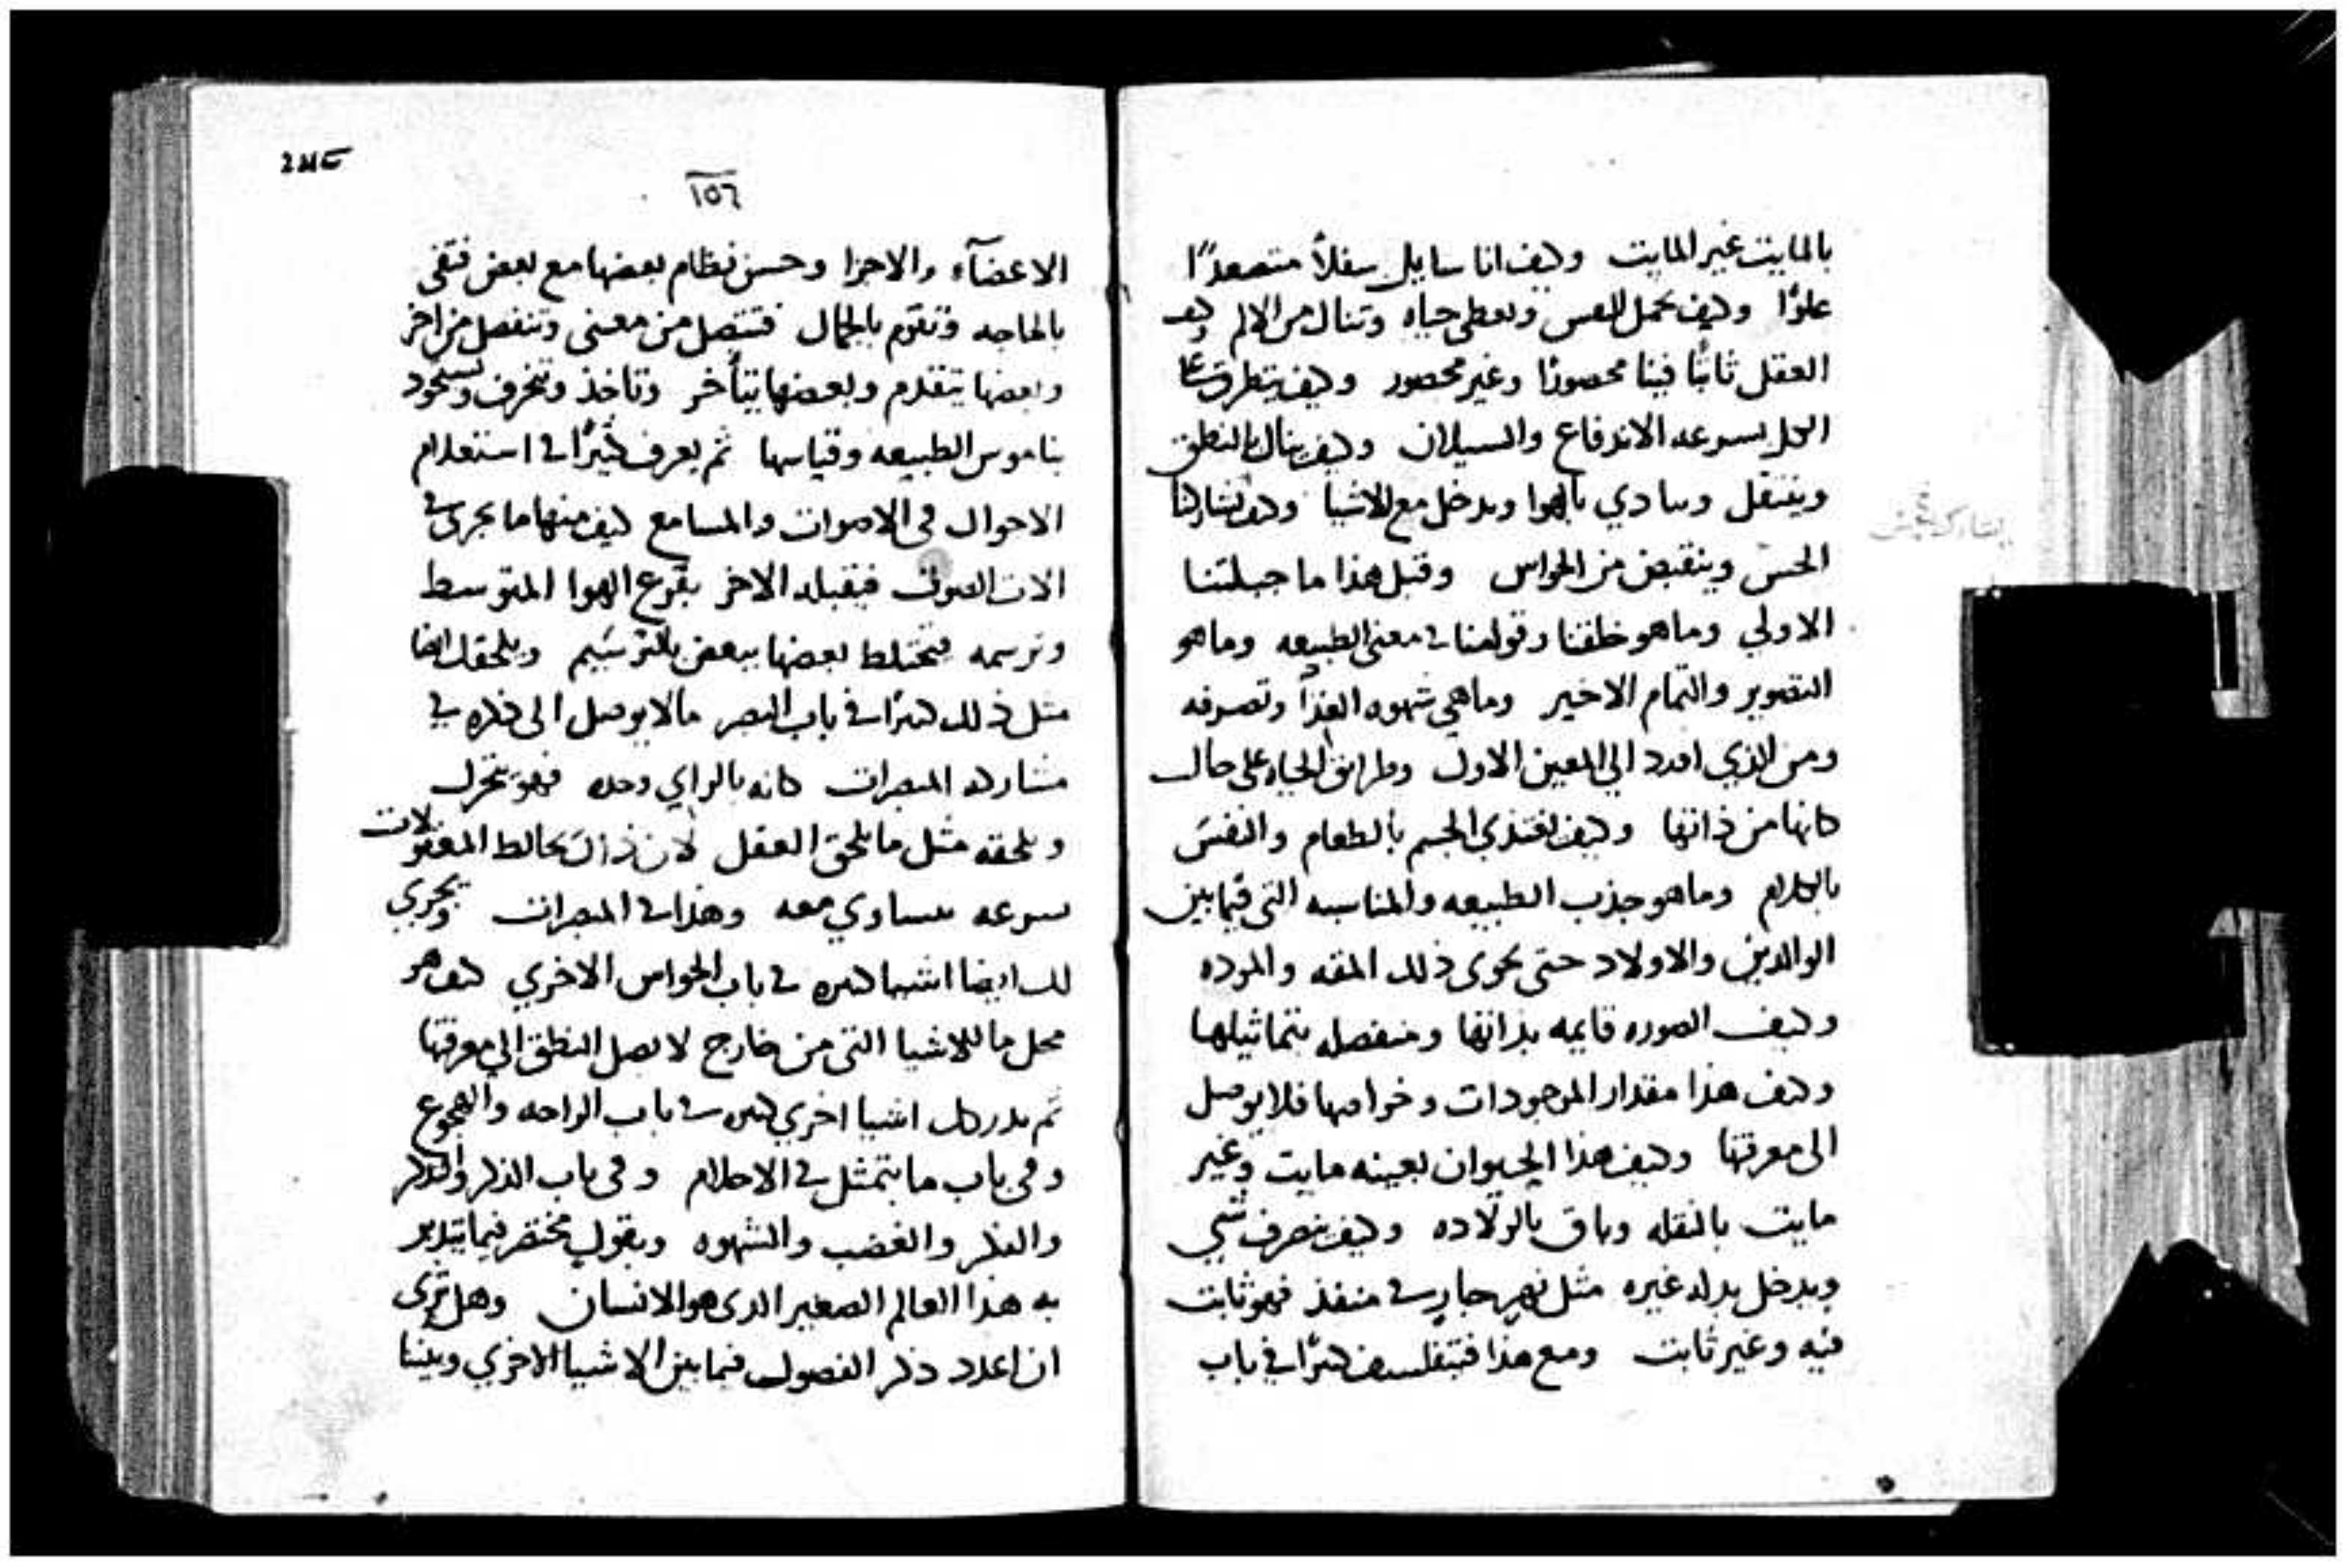 بالمايت غير المايت وكيف انا سايل سفلاً متصعدًا
علوًا وكيف تحمل النفس وتعطي حياه وتنال من الالم وكيف
العقل ثابتًا فينا محصورًا وغير محصور وكيف يتطرق على
الكل بسرعه الاندفاع والسيلان وكيف ينال بالنطق
وينتقل وينادي بالهوا ويدخل مع الاشيا وكيف يشاركنا
الحس وينقبض من الحواس وقبل هذا ما جبلتنا
الاولي وما هو خلقنا وقوامنا في معنى الطبيعه وما هو
التصوير والتمام الاخير وما هي شهوه الغذا وتصرفه
ومن الذي اورد الي المعين الاول وطرايق الحياه على حال
كانها من ذاتها وكيف تغتذي الجسم بالطعام والنفس
بالكلام وما هو جذب الطبيعه والمناسبه التي فيما بين
الوالدين والاولاد حتى تحوى ذلك المقه والموده
وكيف الصوره قايمه بذاتها ومنفصله بتماثيلها
وكيف هذا مقدار الموجودات وخواصها فلا يوصل
الى معرفتها وكيف هذا الحيوان بعينه مايت وغير
مايت بالنقله وباق بالولاده وكيف ينصرف شي
ويدخل بدله غيره مثل نهر جارٍ في منفذ فهو ثابت
فيه وغير ثابت ومع هذا فيتفلسف كثيرًا في باب
١٥٦
الاعضآء والاجزا وحسن نظام بعضها مع بعض فتفي
بالحاجه وتقوم بالجمال فتتصل من معنى وتنفصل من اخر
وبعضها يتقدم وبعضها يتأخر وتاخذ وتنحرف وتستحوذ
بناموس الطبيعه وقياسها ثم يعرف كثيرًا في استعلام
الاحوال في الاصوات والمسامع كيف منها ما يجرى في
الات الصوت فيقبله الاخر بقرع الهوا المتوسط
وترسمه فتختلط بعضها ببعض بالترسيم ويلحقك ايضا
مثل ذلك كثيرًا في باب البصر ما لا يوصل الى ذكره في
مشاركه المبصرات كانه بالراي وحده فهو يتحرك
ويلحقه مثل ما يلحق العقل لان ذاك يخالط المعقولات
بسرعه يتساوي معه وهذا في المبصرات ويجري
لك ايضا اشيا كثيره في باب الحواس الاخري كيف هو
محل ما للاشيا التي من خارج لا يصل النطق الي معرفتها
ثم يدرك اشيا اخري كثيره في باب الراحه والهجوع
وفى باب ما يتمثل في الاحلام وفى باب الذكر والتذكر
والفكر والغضب والشهوه وبقول مختصر فيما يتدبر
به هذا العالم الصغير الذى هو الانسان وهل ترى
ان اعدد ذكر الفصول فيما بين الاشيا الاخري وبيننا